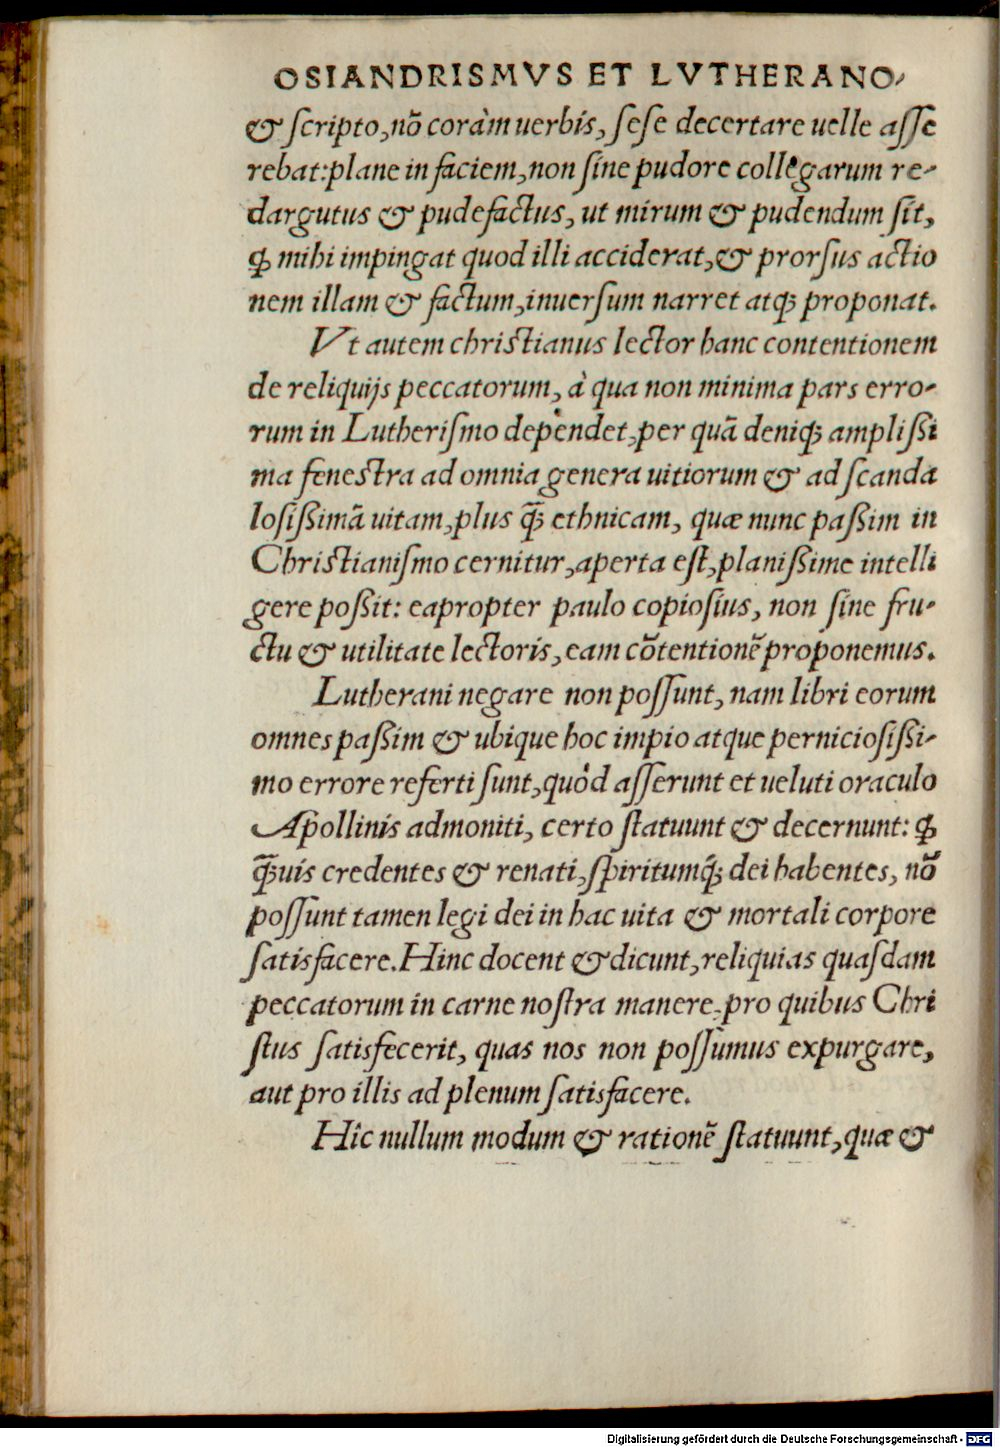 OSIANDRISMVS ET LVTHERANO-
& scripto, nō coràm uerbis, sese decertare uelle asse
rebat: plane in faciem, non sine pudore collegarum re-
dargutus & pudefactus, ut mirum & pudendum sit,
ꝙ mihi impingat quod illi acciderat, & prorsus actio
nem illam & factum, inuersum narret atq; proponat.
Vt autem christianus lector hanc contentionem
de reliquijs peccatorum, à qua non minima pars erro-
rum in Lutherismo dependet, per quā deniq; amplißi
ma fenestra ad omnia genera uitiorum & ad scanda
losißimā uitam, plus q̄; ethnicam, quæ nunc paßim in
Christianismo cernitur, aperta est, planißime intelli
gere poßit: eapropter paulo copiosius, non sine fru-
ctu & utilitate lectoris, eam cōtentionē proponemus.
Lutherani negare non possunt, nam libri eorum
omnes paßim & ubique hoc impio atque perniciosißi-
mo errore referti sunt, quòd asserunt et ueluti oraculo
Apollinis admoniti, certo statuunt & decernunt: ꝙ
q̄;uis credentes & renati, spiritumq́; dei habentes, nō
possunt tamen legi dei in hac uita & mortali corpore
satisfacere. Hinc docent & dicunt, reliquias quasdam
peccatorum in carne nostra manere, pro quibus Chri
stus satisfecerit, quas nos non possumus expurgare,
aut pro illis ad plenum satisfacere.
Hîc nullum modum & rationē statuunt, quæ &
Digitalisierung gefördert durch die Deutsche Forschungsgemeinschaft - DFG